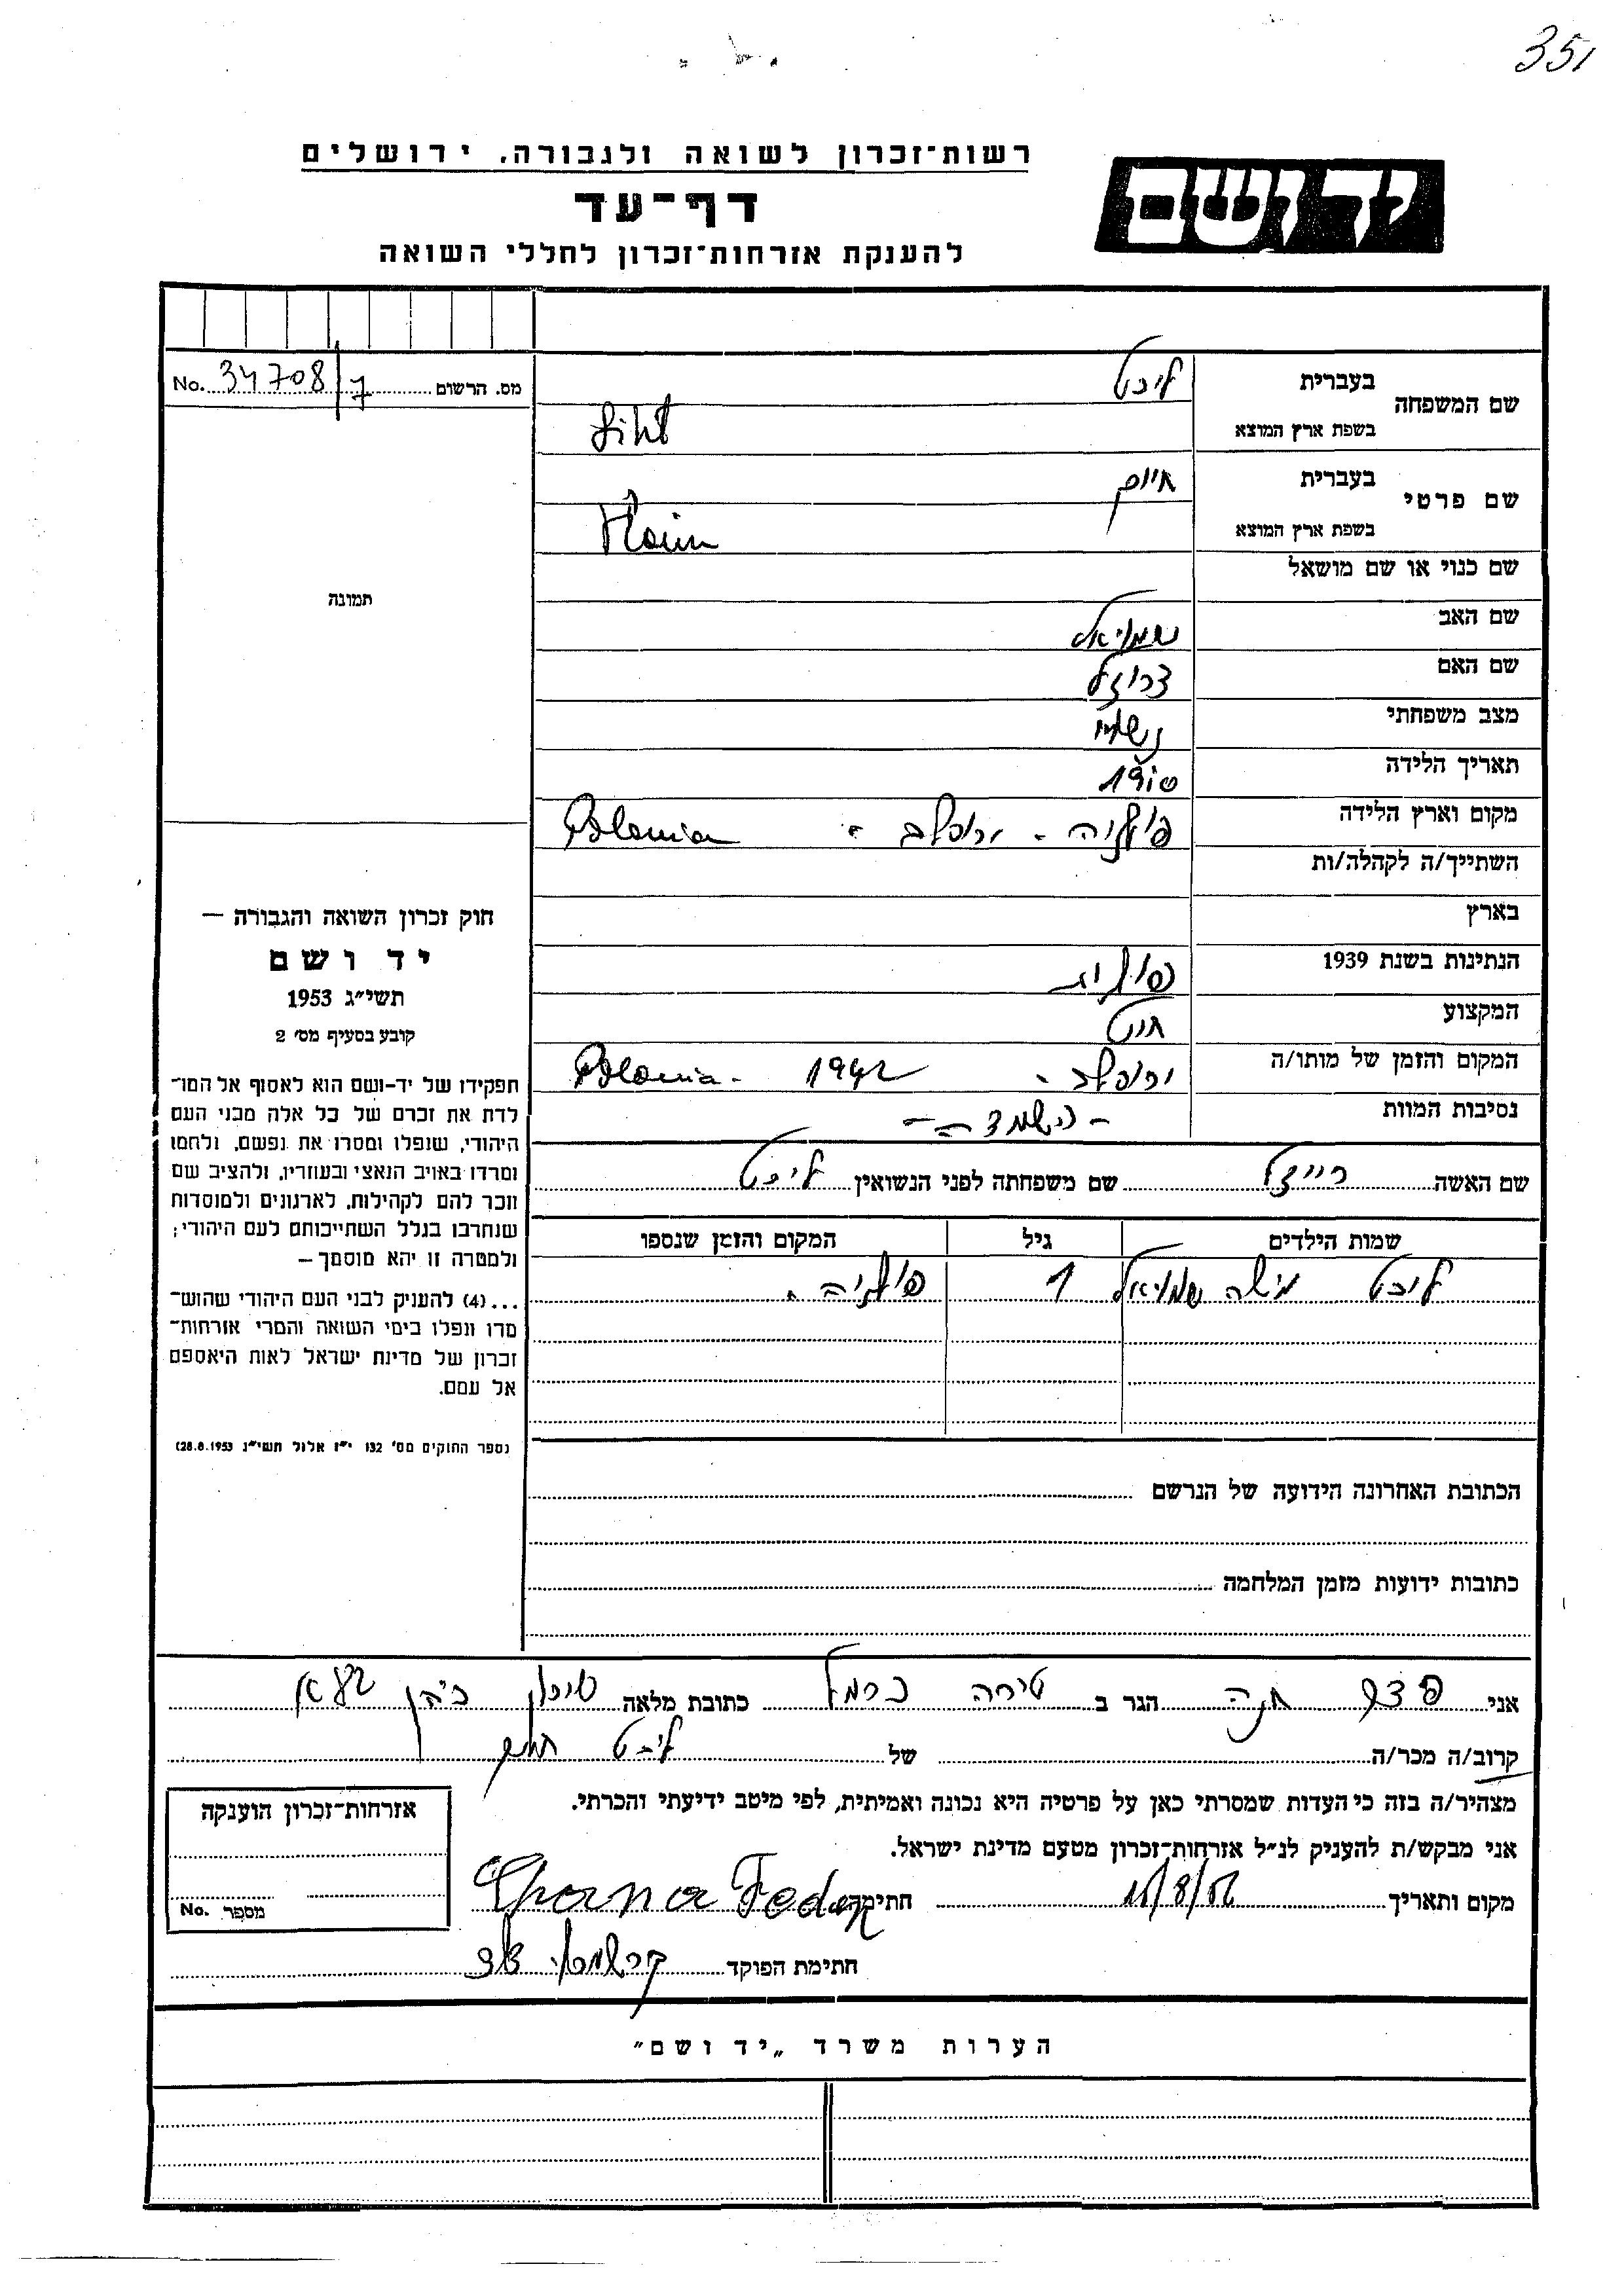 351
רשות־זכרון לשואה ולגבורה, ירושלים
יד ושם
דף־עד
להענקת אזרחות־זכרון לחללי השואה
No. 34708/7 מס. הרשום
שם המשפחה בעברית ליכט
בשפת ארץ המוצא Liht
שם פרטי בעברית חיים
בשפת ארץ המוצא Haim
שם כנוי או שם מושאל
תמונה
שם האב שמויאל
שם האם
מצב משפחתי נשוי
תאריך הלידה
מקום וארץ הלידה פולניה - Polonia
השתייך/ה לקהלה/ות
בארץ
הנתינות בשנת 1939 פולנית
המקצוע
המקום והזמן של מותו/ה 1942 Polonia -
נסיבות המוות - השמדה -
שם האשה רייזל שם משפחתה לפני הנשואין ליכט
שמות הילדים גיל המקום והזמן שנספו
ליכט משה שמויאל 1 פולניה
הכתובת האחרונה הידועה של הנרשם
כתובות ידועות מזמן המלחמה
חוק זכרון השואה והגבורה —
יד ושם
תשי״ג 1953
קובע בסעיף מס׳ 2
תפקידו של יד-ושם הוא לאסוף אל המו־
לדת את זכרם של כל אלה מבני העם
היהודי, שנפלו ומסרו את נפשם, נלחמו
ומרדו באויב הנאצי ובעוזריו, ולהציב שם
וזכר להם לקהילות, לארגונים ולמוסדות
שנחרבו בגלל השתייכותם לעם היהודי;
ולמטרה זו יהא מוסמך —
...(4) להעניק לבני העם היהודי שהוש־
מדו ונפלו בימי השואה והמרי אזרחות־
זכרון של מדינת ישראל לאות היאספם
אל עמם.
(ספר החוקים מס׳ 132 י״ז אלול תשי״ג 28.8.1953)
אני פדר חנה הגר ב טירה כרמל כתובת מלאה שיכון
קרוב/ה מכר/ה של ליכט חיים
מצהיר/ה בזה כי העדות שמסרתי כאן על פרטיה היא נכונה ואמיתית, לפי מיטב ידיעתי והכרתי.
אני מבקש/ת להעניק לנ״ל אזרחות־זכרון מטעם מדינת ישראל.
מקום ותאריך חתימה Chana Feder
חתימת הפוקד
אזרחות־זכרון הוענקה
No. מספר
הערות משרד „יד ושם״